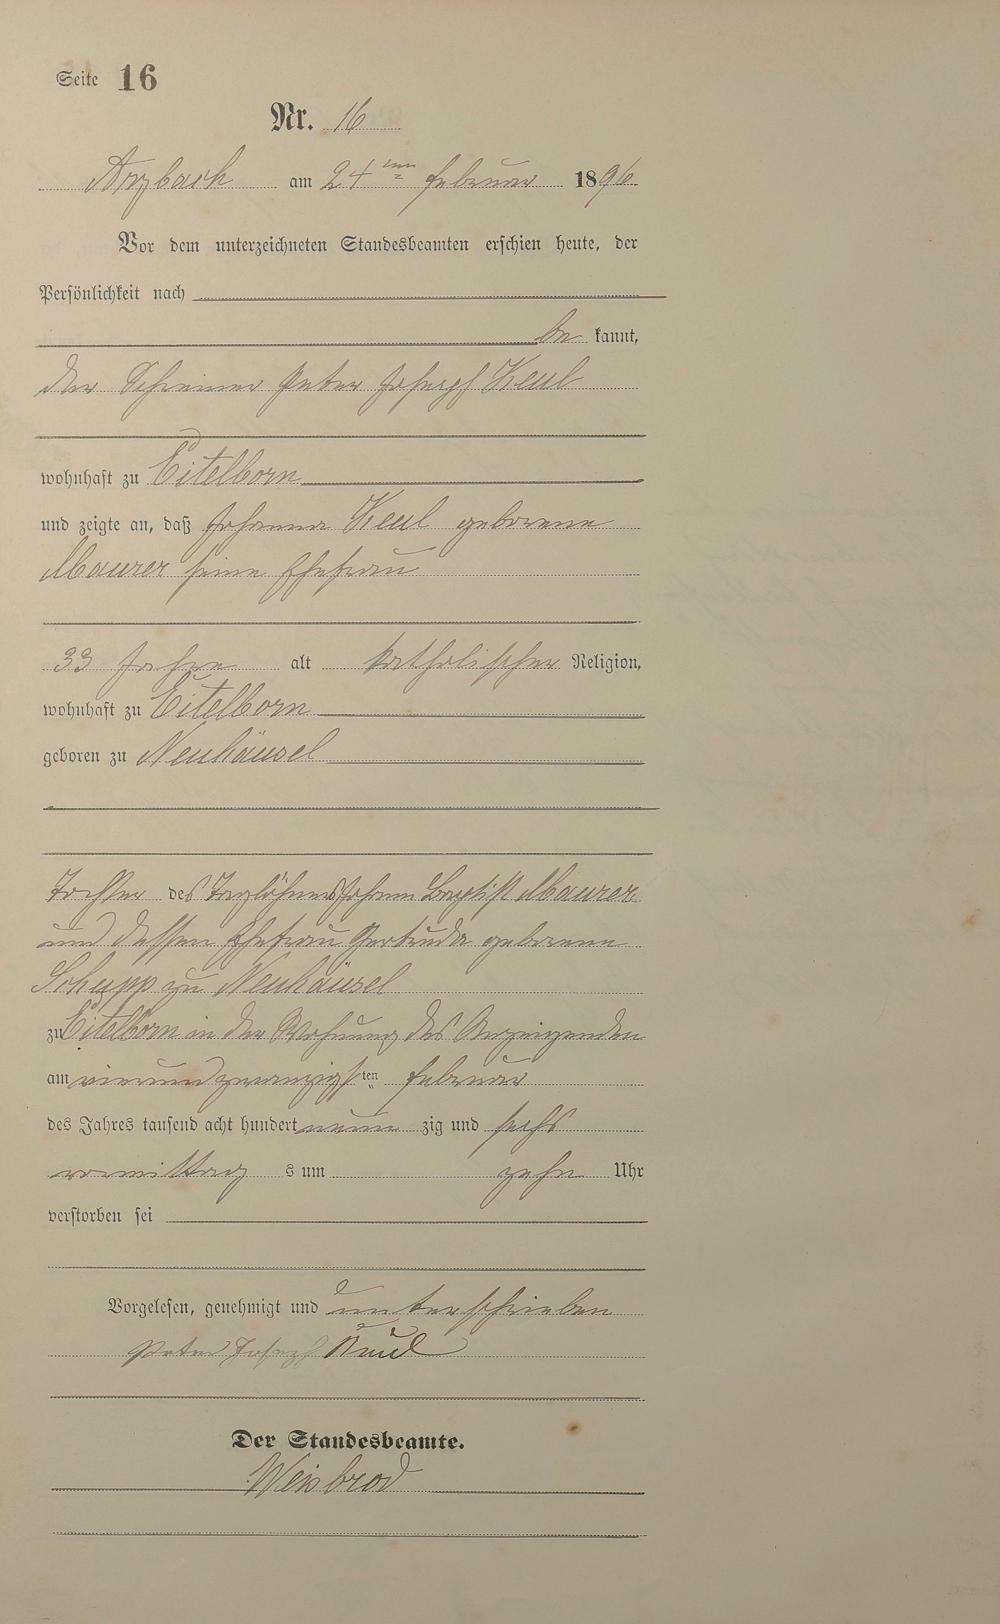 Seite 16
Nr. 16
Arzbach am 24ten Februar 1896
Vor dem unterzeichneten Standesbeamten erschien heute, der
Persönlichkeit nach
be kannt,
der Schreiner Peter Joseph Keul
wohnhaft zu Eitelborn
und zeigte an, daß Johanna Keul geborene
Maurer seine Ehefrau
33 Jahre alt katholischer Religion,
wohnhaft zu Eitelborn
geboren zu Neuhäusel
Tochter des Taglöhners Johann Baptist Maurer
und dessen Ehefrau Gertruda geborene
Schupp zu Neuhäusel
zu Eitelborn in der Wohnung des Anzeigenden
am vierundzwanzigsten ten Februar
des Jahres tausend acht hundert neun zig und sechs
vormittag s um zehn Uhr
verstorben sei
Vorgelesen, genehmigt und unterschrieben
Peter Joseph Keul
Der Standesbeamte.
Weisbrod